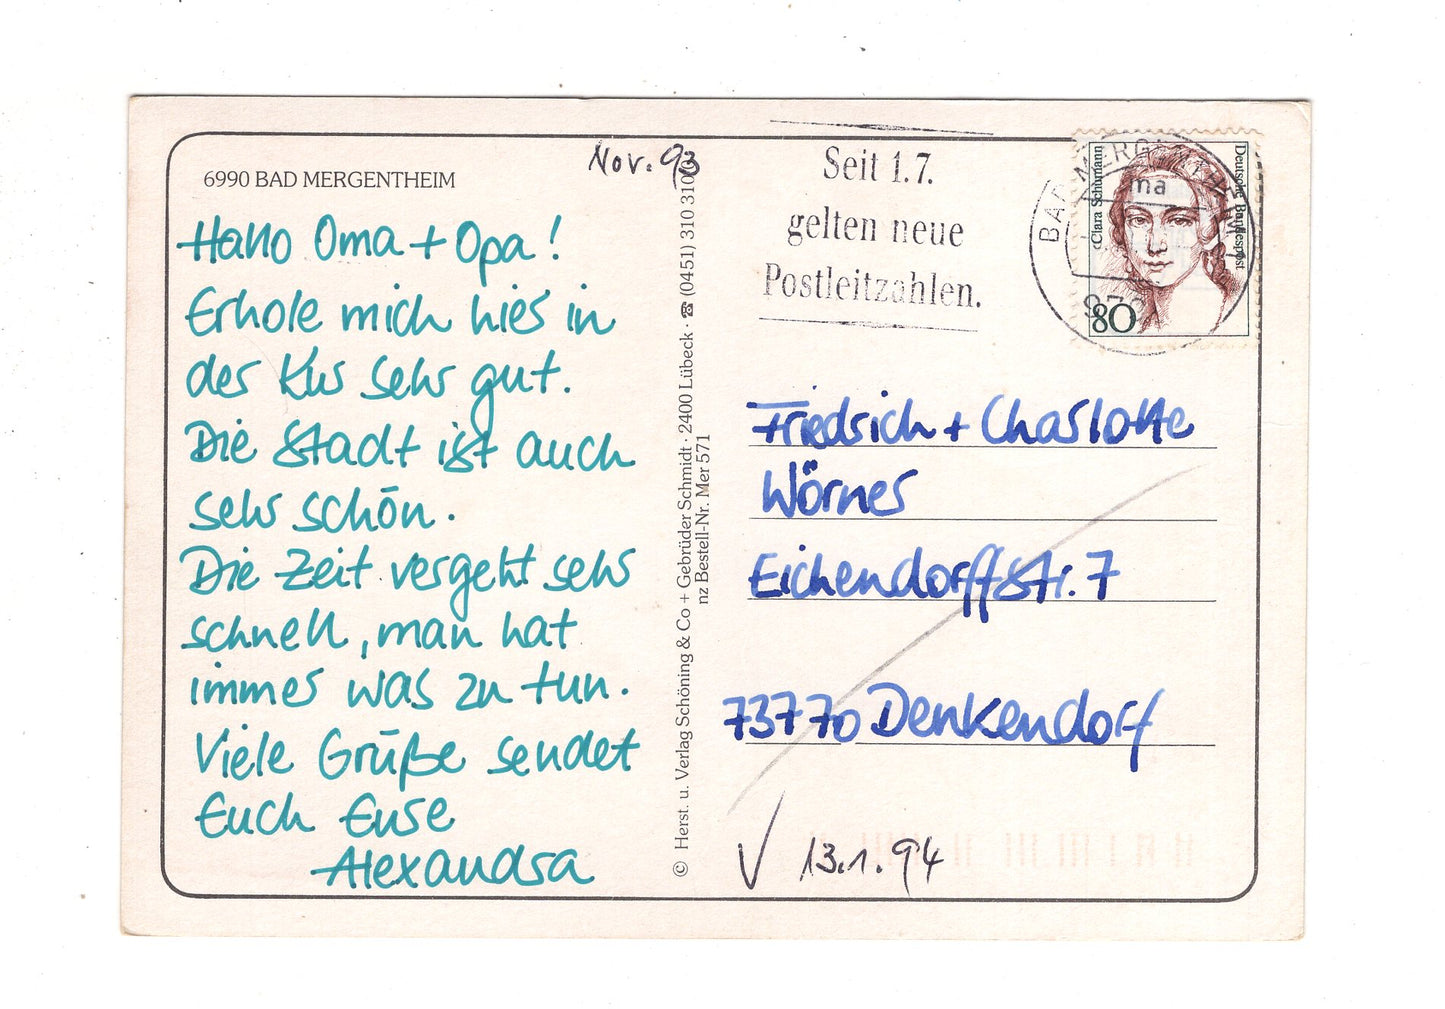 6990 BAD MERGENTHEIM
Nov. 93
Hallo Oma + Opa!
Erhole mich hier in
der Kur sehr gut.
Die Stadt ist auch
sehr schön.
Die Zeit vergeht sehr
schnell, man hat
immer was zu tun.
Viele Grüße sendet
Euch Eure
Alexandra
© Herst. u. Verlag Schöning & Co + Gebrüder Schmidt · 2400 Lübeck · ☎ (0451) 310 310
nz Bestell-Nr. Mer 571
Seit 1.7.
gelten neue
Postleitzahlen.
BAD MERGENTHEIM
ma
Clara Schumann
Deutsche Bundespost
80
Friedrich + Charlotte
Wörner
Eichendorffstr. 7
73770 Denkendorf
√ 13.1.94